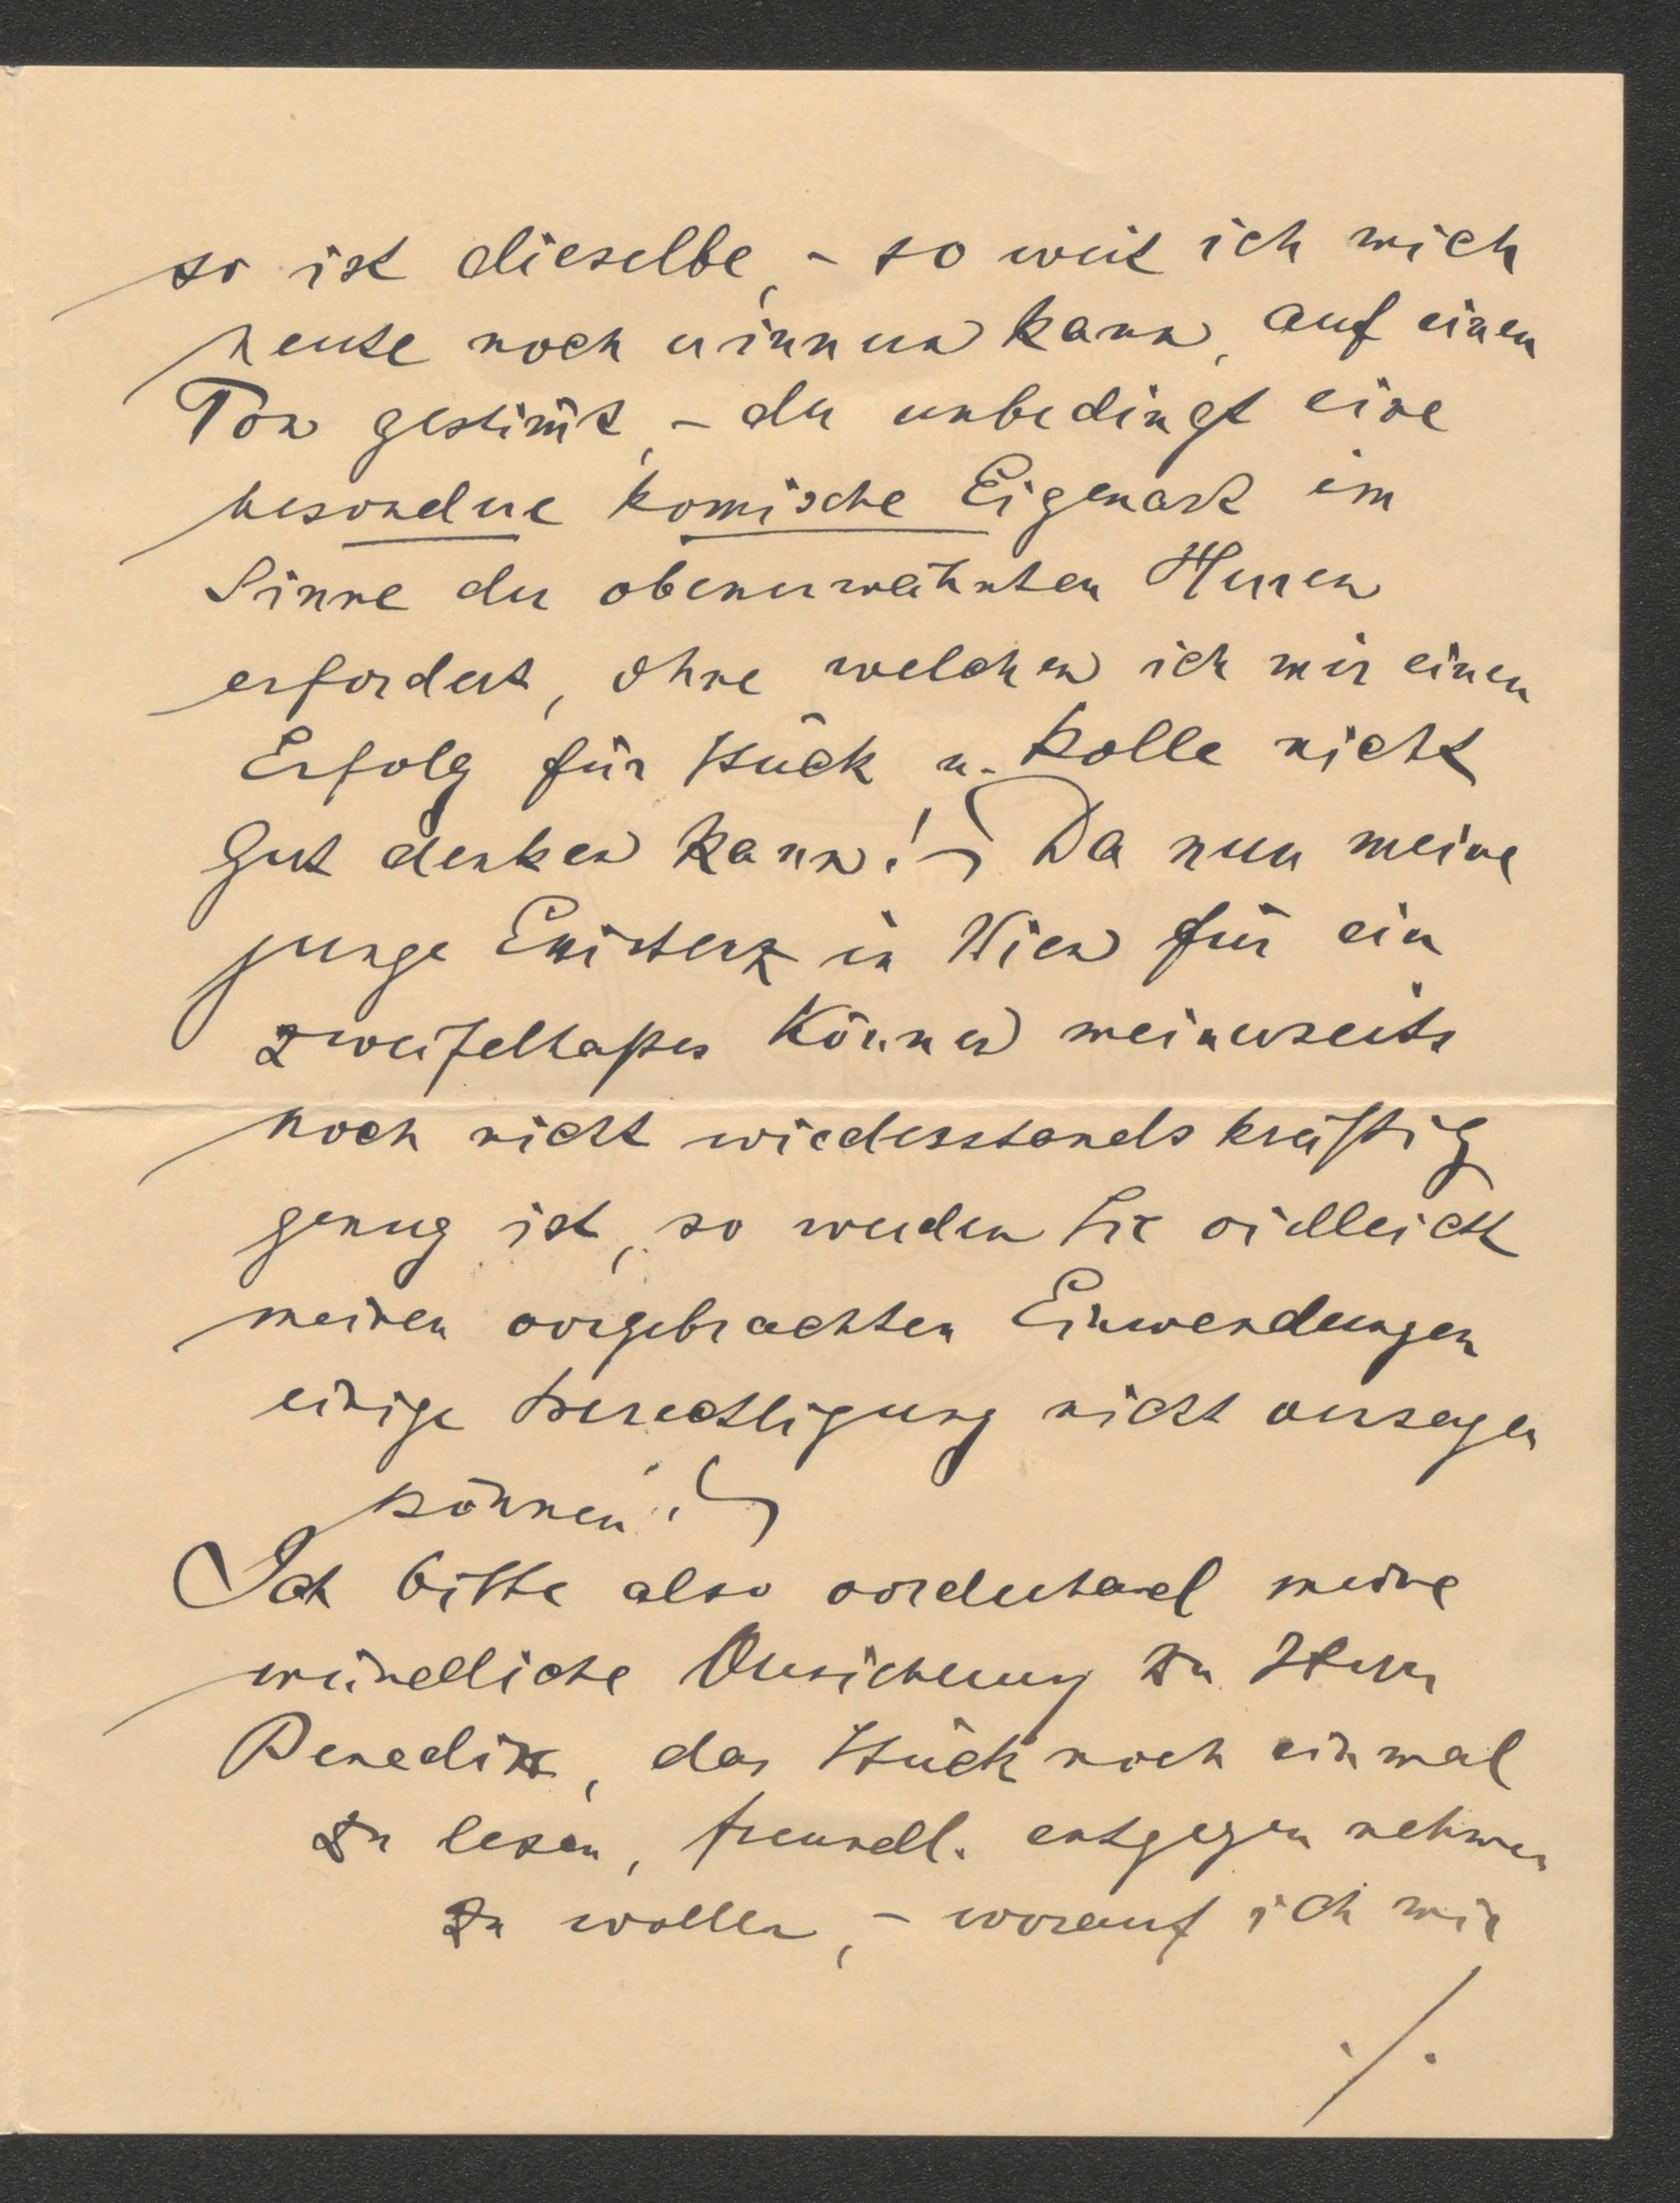 so ist dieselbe, - so weit ich mich
heute noch erinnern kann, auf einen
Ton gestim̄t, - der unbedingt eine
besondere komische Eigenart im
Sinne der obenerwähnten Herren
erfordert, ohne welchen ich mir einen
Erfolg für Stück u. Rolle nicht
gut denken kann! - Da nun meine
junge Existenz in Wien für ein
zweifelhaftes Können meinerseits
noch nicht wiederstandskräftig
genug ist, so werden Sie vielleicht
meinen vorgebrachten Einwendungen
einige Berechtigung nicht versagen
können! -
Ich bitte also vorderhand meine
mündliche Versicherung zu Herrn
Benedikt, das Stück noch einmal
zu lesen, freundl. entgegen nehmen
zu wollen, - worauf ich mir
./.